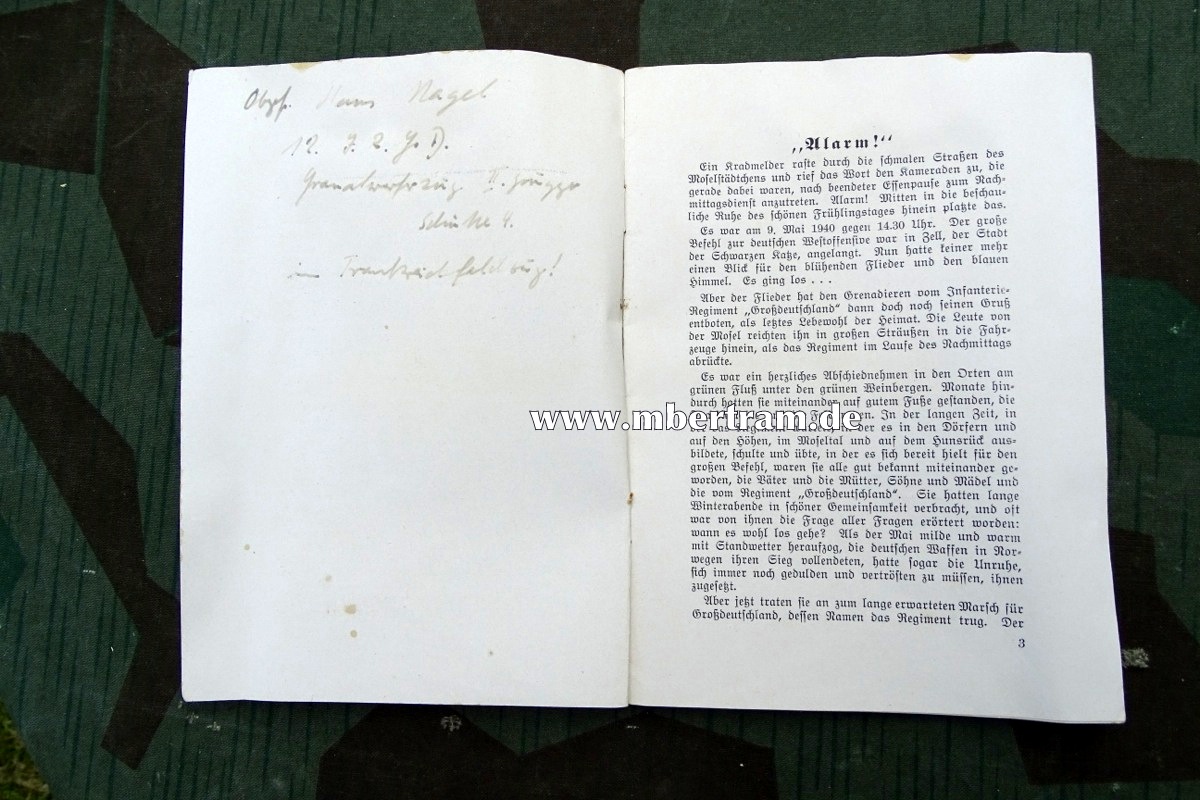 Obgf. Hans Nagel
12. J. R. G. D.
Granatwerferzug II. Gruppe
Schütze 4.
im Frankreichfeldzug!
„Alarm!“
Ein Kradmelder raste durch die schmalen Straßen des
Moselstädtchens und rief das Wort den Kameraden zu, die
gerade dabei waren, nach beendeter Essenpause zum Nach-
mittagsdienst anzutreten. Alarm! Mitten in die beschau-
liche Ruhe des schönen Frühlingstages hinein platzte das.
Es war am 9. Mai 1940 gegen 14.30 Uhr. Der große
Befehl zur deutschen Westoffensive war in Zell, der Stadt
der Schwarzen Katze, angelangt. Nun hatte keiner mehr
einen Blick für den blühenden Flieder und den blauen
Himmel. Es ging los . . .
Aber der Flieder hat den Grenadieren vom Infanterie-
Regiment „Großdeutschland“ dann doch noch seinen Gruß
entboten, als letztes Lebewohl der Heimat. Die Leute von
der Mosel reichten ihn in großen Sträußen in die Fahr-
zeuge hinein, als das Regiment im Laufe des Nachmittags
abrückte.
Es war ein herzliches Abschiednehmen in den Orten am
grünen Fluß unter den grünen Weinbergen. Monate hin-
durch hatten sie miteinander auf gutem Fuße gestanden, die
www.mbertram.de
en. In der langen Zeit, in
der das Regiment in der es in den Dörfern und
auf den Höhen, im Moseltal und auf dem Hunsrück aus-
bildete, schulte und übte, in der es sich bereit hielt für den
großen Befehl, waren sie alle gut bekannt miteinander ge-
worden, die Väter und die Mütter, Söhne und Mädel und
die vom Regiment „Großdeutschland“. Sie hatten lange
Winterabende in schöner Gemeinsamkeit verbracht, und oft
war von ihnen die Frage aller Fragen erörtert worden:
wann es wohl los gehe? Als der Mai milde und warm
mit Standwetter heraufzog, die deutschen Waffen in Nor-
wegen ihren Sieg vollendeten, hatte sogar die Unruhe,
sich immer noch gedulden und vertrösten zu müssen, ihnen
zugesetzt.
Aber jetzt traten sie an zum lange erwarteten Marsch für
Großdeutschland, dessen Namen das Regiment trug. Der
3